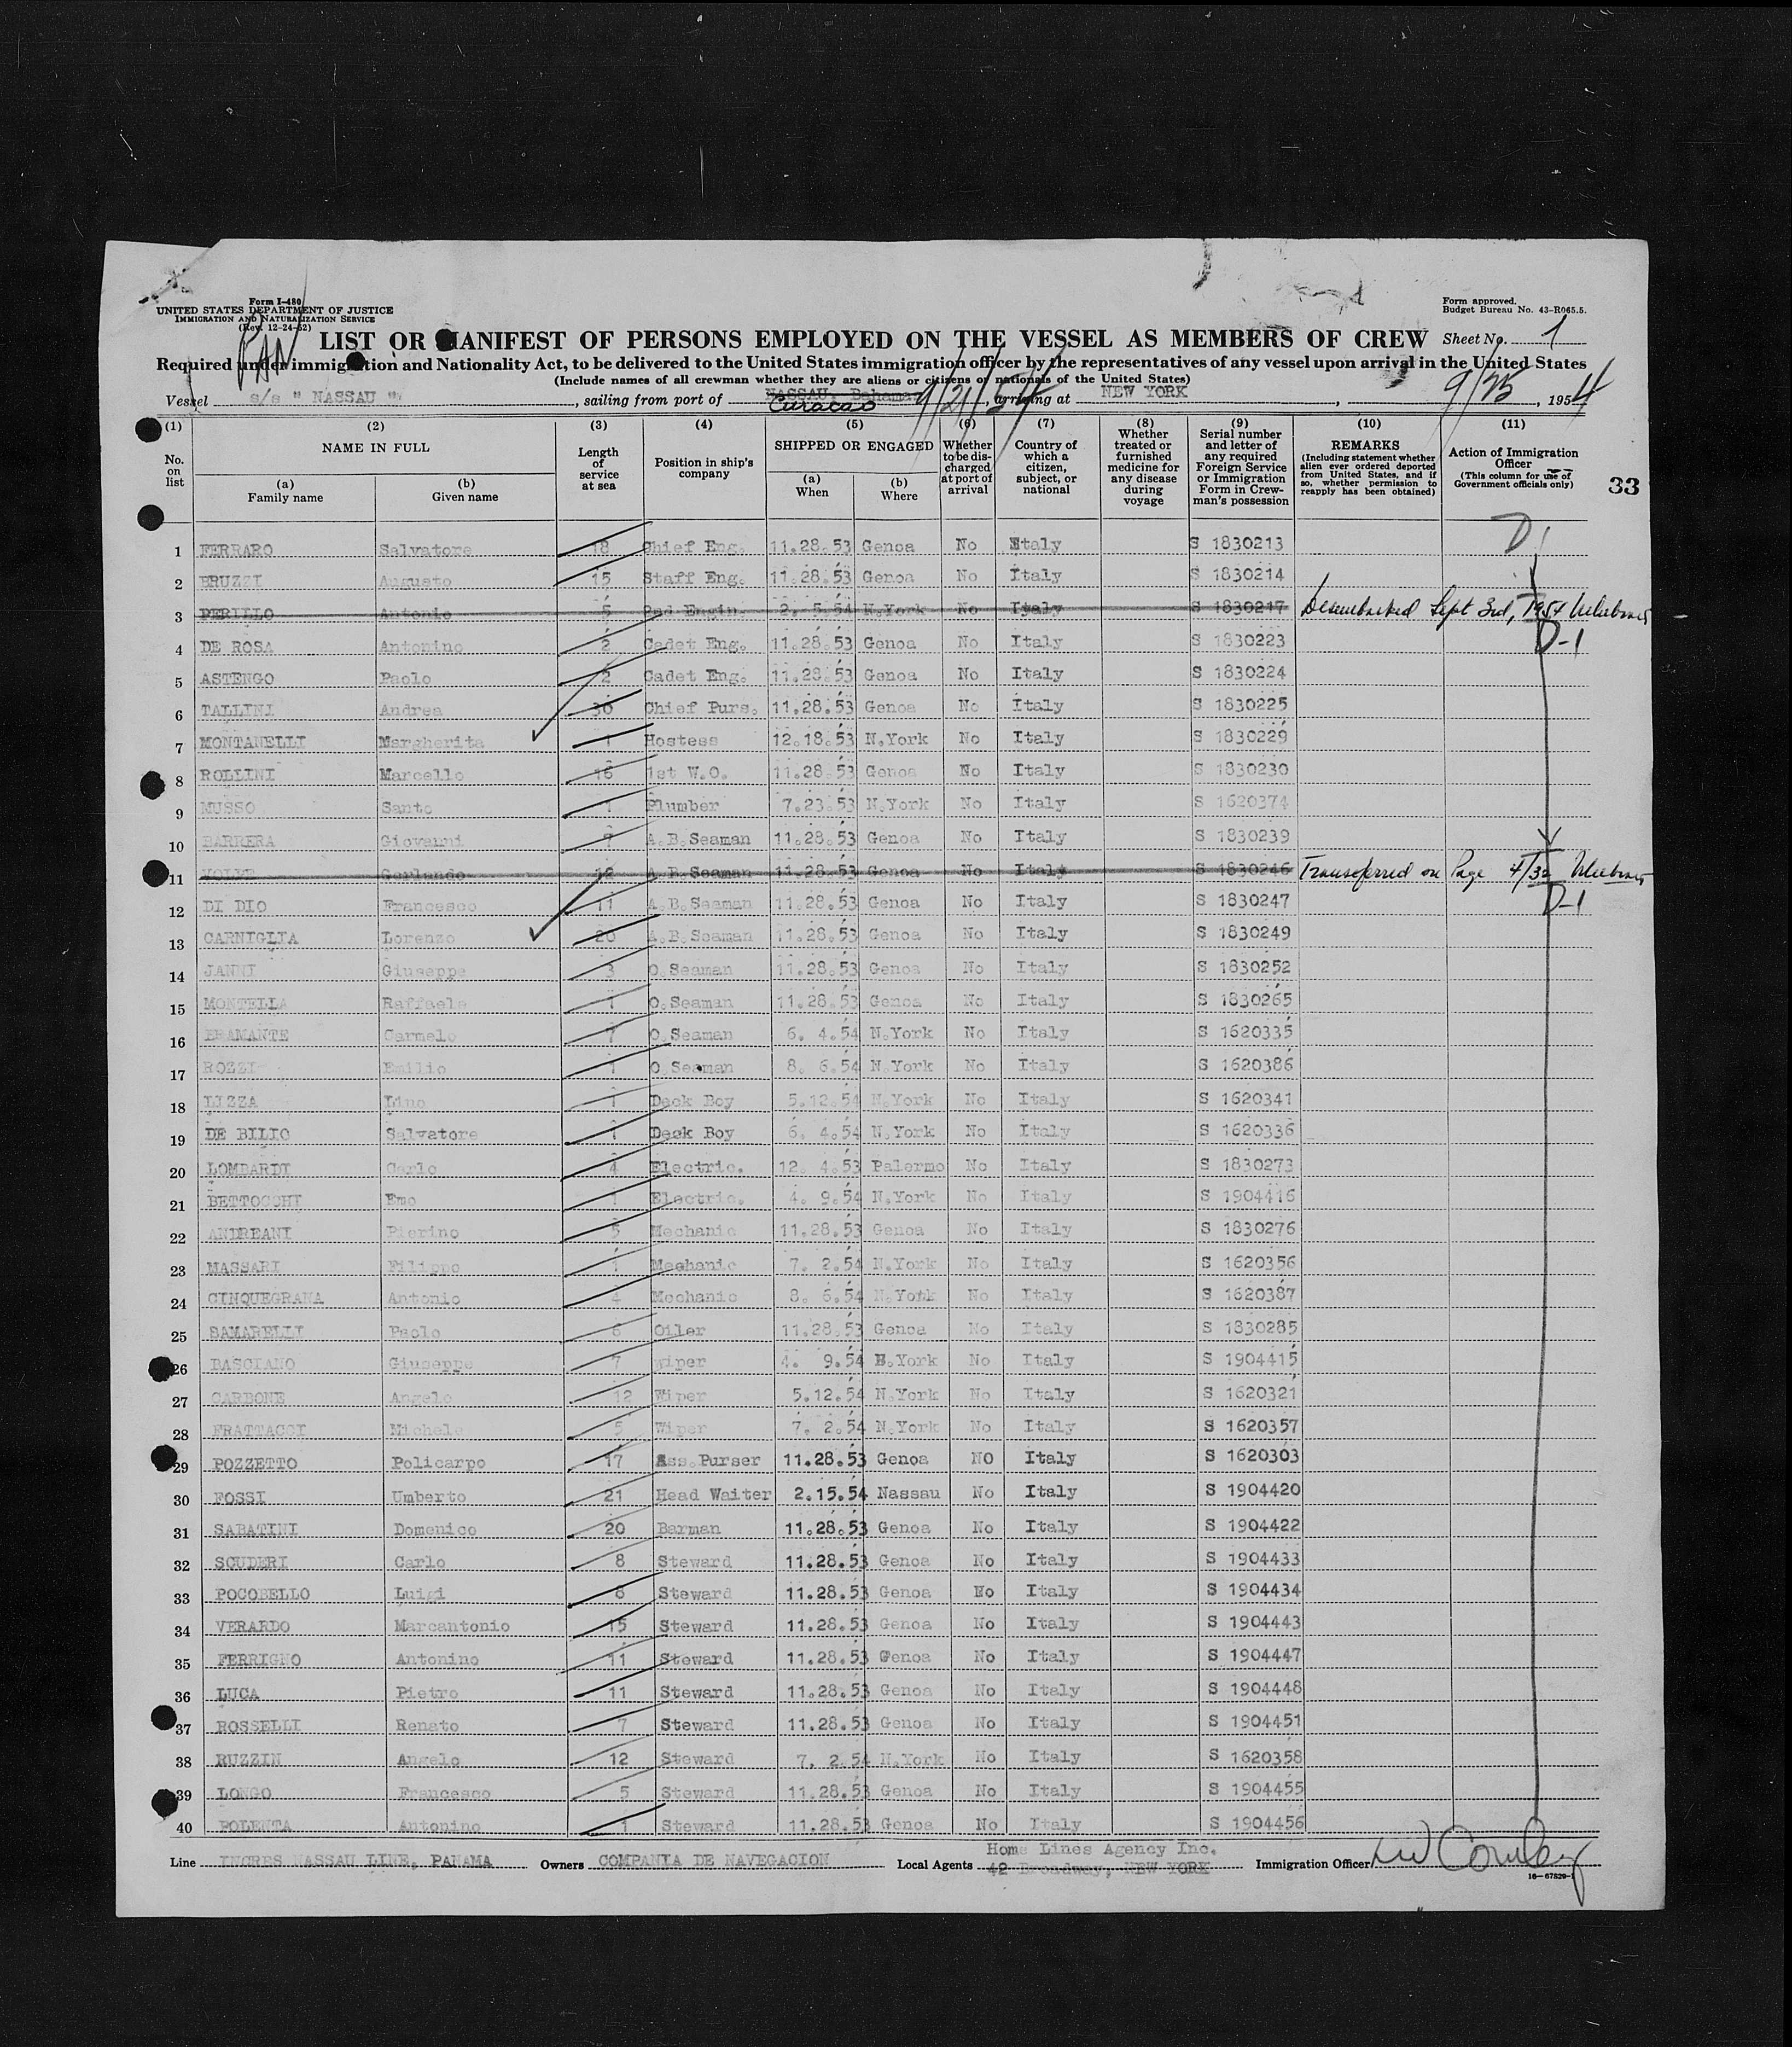 Form I-480
UNITED STATES DEPARTMENT OF JUSTICE
IMMIGRATION AND NATURALIZATION SERVICE
(Rev. 12-24-52)
Form approved.
Budget Bureau No. 43-R065.5.
PAN
LIST OR MANIFEST OF PERSONS EMPLOYED ON THE VESSEL AS MEMBERS OF CREW Sheet No. 1
Required under immigration and Nationality Act, to be delivered to the United States immigration officer by the representatives of any vessel upon arrival in the United States
(Include names of all crewman whether they are aliens or citizens or nationals of the United States)
Vessel s/s " NASSAU ", sailing from port of NASSAU, Bahamas Curacao 9/21/54, arriving at NEW YORK, 9/25, 1954
(1) No. on list (2) NAME IN FULL (a) Family name (b) Given name (3) Length of service at sea (4) Position in ship's company (5) SHIPPED OR ENGAGED (a) When (b) Where (6) Whether to be discharged at port of arrival (7) Country of which a citizen, subject, or national (8) Whether treated or furnished medicine for any disease during voyage (9) Serial number and letter of any required Foreign Service or Immigration Form in Crewman's possession (10) REMARKS (Including statement whether alien ever ordered deported from United States, and if so, whether permission to reapply has been obtained) (11) Action of Immigration Officer (This column for use of Government officials only)
33
1 FERRARO Salvatore 18 Chief Eng. 11.28.53 Genoa No Italy S 1830213 D1
2 BRUZZI Augusto 15 Staff Eng. 11.28.53 Genoa No Italy S 1830214
3 PERILLO Antonio 5 2nd Engin. 2. 5.54 N.York No Italy S 1830217 Disembarked Sept 3rd, 1954
4 DE ROSA Antonino 2 Cadet Eng. 11.28.53 Genoa No Italy S 1830223 D-1
5 ASTENGO Paolo 2 Cadet Eng. 11.28.53 Genoa No Italy S 1830224
6 TALLINI Andrea 30 Chief Purs. 11.28.53 Genoa No Italy S 1830225
7 MONTANELLI Margherita 1 Hostess 12.18.53 N.York No Italy S 1830229
8 ROLLINI Marcello 16 1st W.O. 11.28.53 Genoa No Italy S 1830230
9 MUSSO Santo 1 Plumber 7.23.53 N.York No Italy S 1620374
10 BARRERA Giovanni 7 A.B.Seaman 11.28.53 Genoa No Italy S 1830239
11 VOLPE Gerlando 12 A.B.Seaman 11.28.53 Genoa No Italy S 1830246 Transferred on Page 4/32
12 DI DIO Francesco 11 A.B.Seaman 11.28.53 Genoa No Italy S 1830247 D-1
13 CARNIGLIA Lorenzo 20 A.B.Seaman 11.28.53 Genoa No Italy S 1830249
14 JANNI Giuseppe 3 O.Seaman 11.28.53 Genoa No Italy S 1830252
15 MONTELLA Raffaele 1 O.Seaman 11.28.53 Genoa No Italy S 1830265
16 BRAMANTE Carmelo 7 O.Seaman 6. 4.54 N.York No Italy S 1620335
17 ROZZI Emilio 1 O.Seaman 8. 6.54 N.York No Italy S 1620386
18 LIZZA Lino 1 Deck Boy 5.12.54 N.York No Italy S 1620341
19 DE BILIO Salvatore 1 Deck Boy 6. 4.54 N.York No Italy S 1620336
20 LOMBARDI Carlo 4 Electric. 12. 4.53 Palermo No Italy S 1830273
21 BETTOCCHI Emo 1 Electric. 4. 9.54 N.York No Italy S 1904416
22 ANDREANI Pierino 5 Mechanic 11.28.53 Genoa No Italy S 1830276
23 MASSARI Filippo 1 Mechanic 7. 2.54 N.York No Italy S 1620356
24 CINQUEGRANA Antonio 4 Mechanic 8. 6.54 N.York No Italy S 1620387
25 SAMARELLI Paolo 6 Oiler 11.28.53 Genoa No Italy S 1830285
26 BASCIANO Giuseppe 7 Wiper 4. 9.54 N.York No Italy S 1904415
27 CARBONE Angelo 12 Wiper 5.12.54 N.York No Italy S 1620321
28 FRATTACCI Michele 5 Wiper 7. 2.54 N.York No Italy S 1620357
29 POZZETTO Policarpo 17 Ass.Purser 11.28.53 Genoa NO Italy S 1620303
30 FOSSI Umberto 21 Head Waiter 2.15.54 Nassau No Italy S 1904420
31 SABATINI Domenico 20 Barman 11.28.53 Genoa No Italy S 1904422
32 SCUDERI Carlo 8 Steward 11.28.53 Genoa No Italy S 1904433
33 POCOBELLO Luigi 8 Steward 11.28.53 Genoa No Italy S 1904434
34 VERARDO Marcantonio 15 Steward 11.28.53 Genoa No Italy S 1904443
35 FERRIGNO Antonino 11 Steward 11.28.53 Genoa No Italy S 1904447
36 LUCA Pietro 11 Steward 11.28.53 Genoa No Italy S 1904448
37 ROSSELLI Renato 7 Steward 11.28.53 Genoa No Italy S 1904451
38 RUZZIN Angelo 12 Steward 7. 2.54 N.York No Italy S 1620358
39 LONGO Francesco 5 Steward 11.28.53 Genoa No Italy S 1904455
40 POLENTA Antonino 1 Steward 11.28.53 Genoa No Italy S 1904456
Line INCRES NASSAU LINE, PANAMA Owners COMPANIA DE NAVEGACION Local Agents Home Lines Agency Inc. 42 Broadway, NEW YORK Immigration Officer
16-67829-1